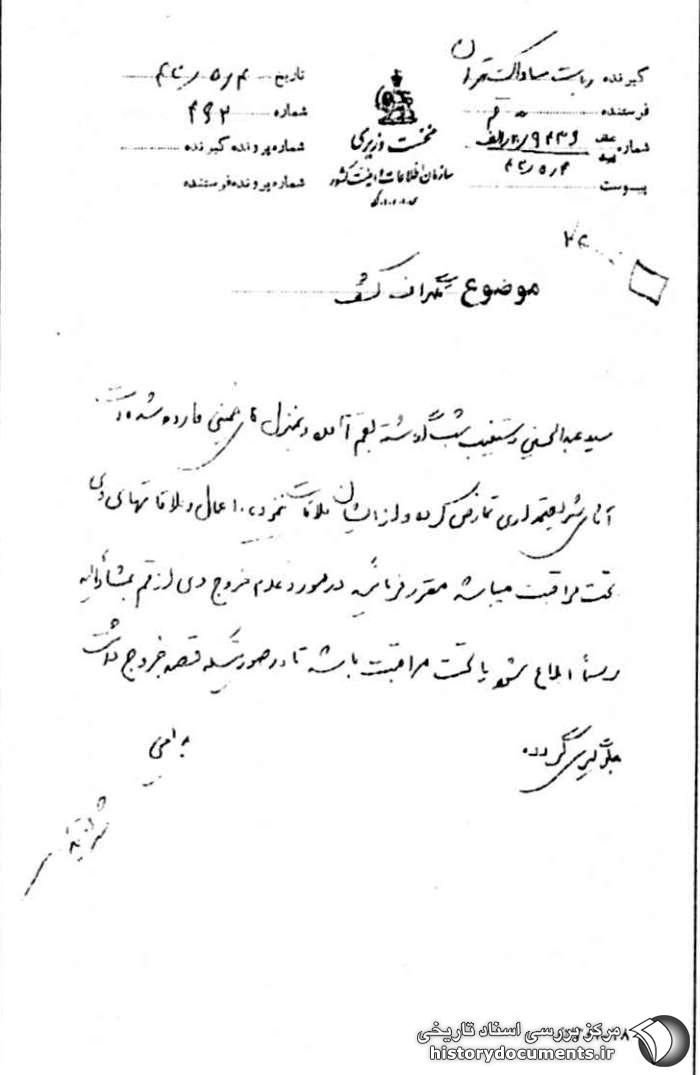 گیرنده ریاست ساواک تهران
فرستنده قم
شماره ۲۰/۹۴۳۶/الف
۴۲/۵/۴
پیوست
نخست وزیری
سازمان اطلاعات و امنیت کشور
س.ا.و.ا.ک
تاریخ ۴۲/۵/۴
شماره ۴۹۲
شماره پرونده گیرنده
شماره پرونده فرستنده
موضوع
سید عبدالحسین دستغیب شب گذشته بقم آمده و بمنزل خمینی وارد شده است
آقای شریعتمداری تمارض کرده و از ایشان ملاقات ننموده. اعمال و ملاقاتهای وی
تحت مراقبت میباشد مقرر فرمائید در مورد عدم خروج وی از قم بمشارالیه
رسماً ابلاغ شود یا تحت مراقبت باشد تا در صورتیکه قصد خروج داشت
جلوگیری گردد
مرکز بررسی اسناد تاریخی
historydocuments.ir